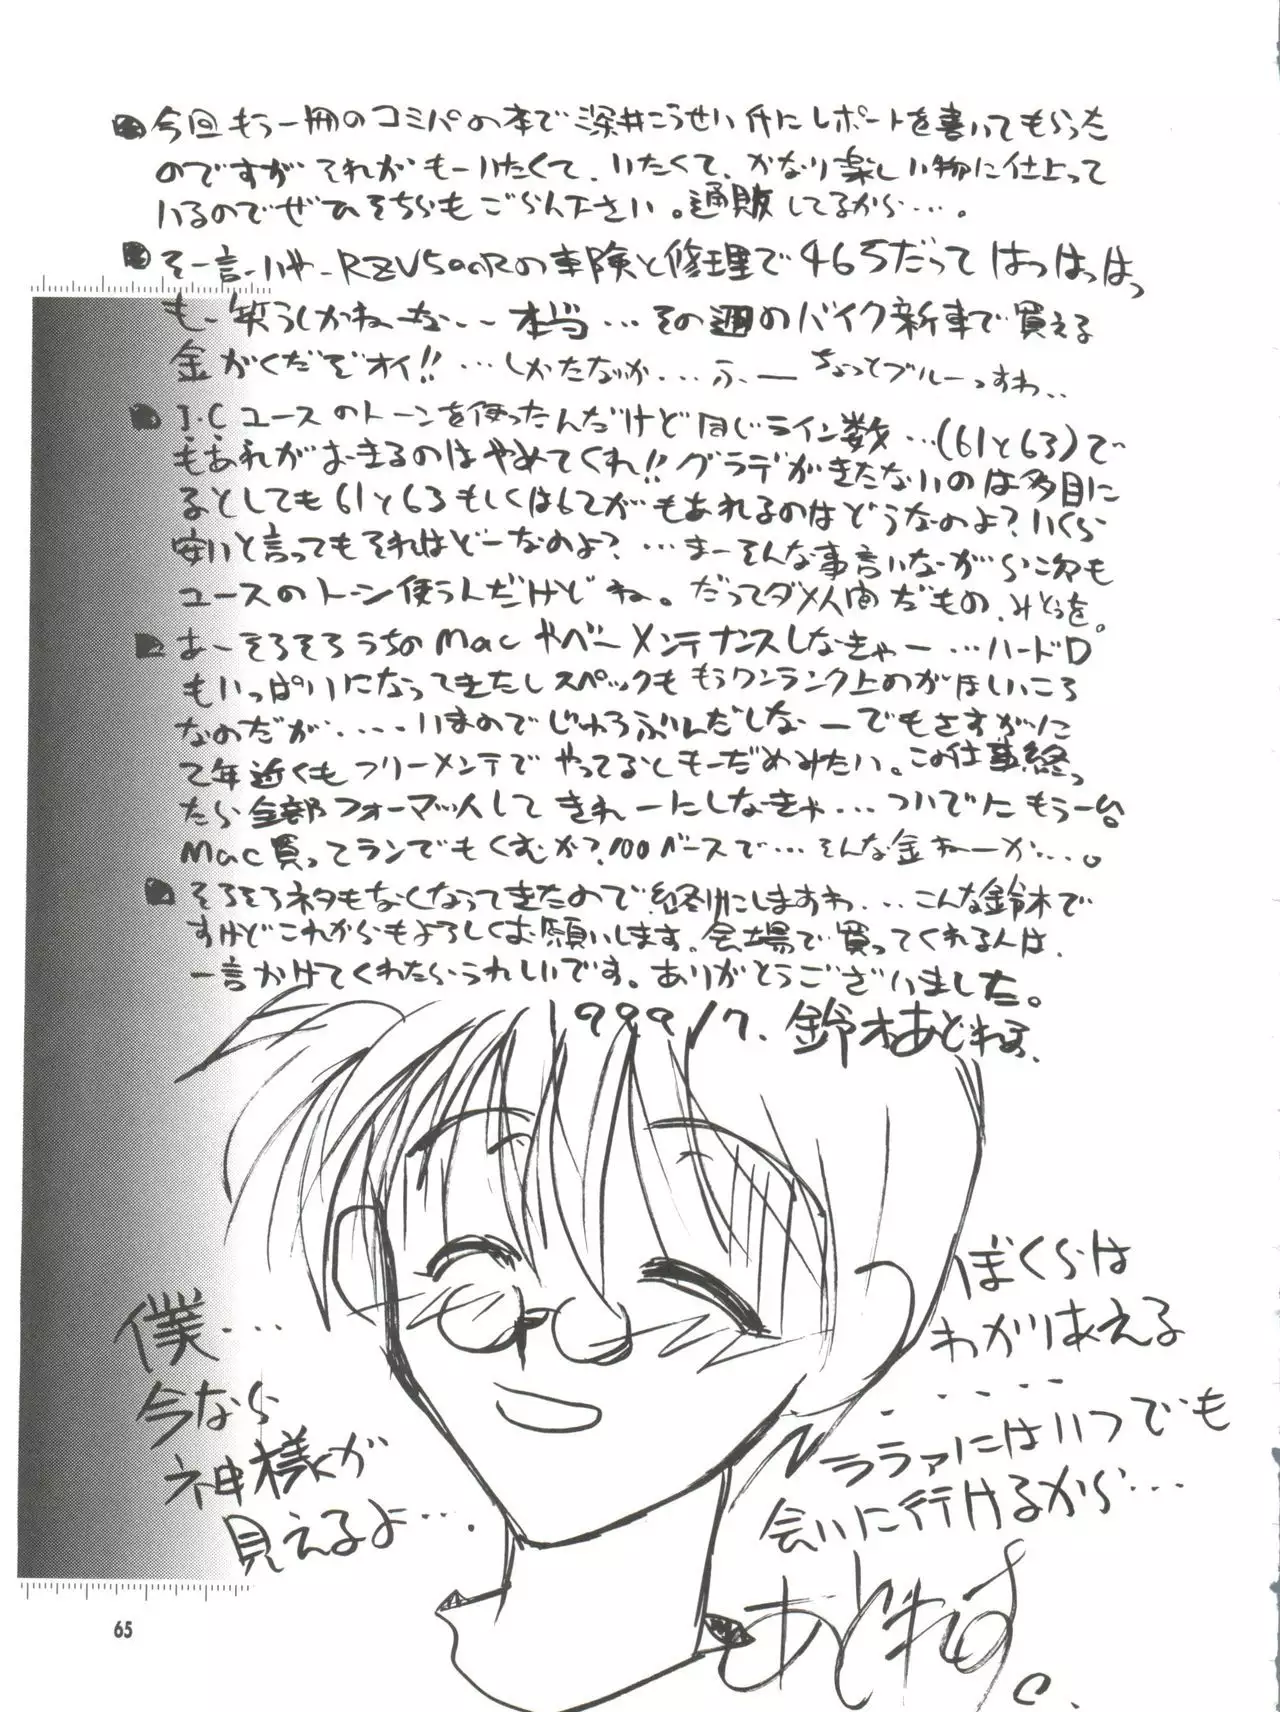 今回もう一冊のコミパの本で深井こうせい件にレポートを書いてもらった
のですが それがもーいたくて、いたくて、かなり楽しい物に仕上って
いるのでぜひそちらもごらん下さい。通販してるから…。
そー言ーいやーRZV500Rの車険と修理で465だって はっはっはっ
もー笑うしかねーなー 本当…その週のバイク新車で買える
金がくだぞオイ!!…しかたなか…ふー ちょっとブルーっすわ…
I・Cユースのトーンを使ったんだけど同じライン数…(61と63)で
もあれがおきるのはやめてくれ!! グラデがきたないのは多目に
るとしても61と63もしくは62がもあれるのはどうなのよ? いくら
安いと言ってもそれはどーなのよ? …まーそんな事言いながら次も
ユースのトーン使うんだけどね。だってダメ人間だもの、みとぅを。
はーそろそろうちのMacやべーメンテナンスしなきゃー…ハードD
もいっぱいになってきたしスペックももうワンランク上のがほしいころ
なのだが....いまのでじゅうぶんだしなーでもさすがに
2年近くもフリーメンテでやってるしもーだめみたい。この仕事終っ
たら全部フォーマットしてきれーにしなきゃ…ついでにもう一台
Mac買ってランでもくむか?100ベースで…そんな金ねーか…。
そろそろネタもなくなってきたので終りにしますわ…こんな鈴木で
すけどこれからもよろしくお願いします。会場で買ってくれる人は、
一言かけてくれたらうれしいです。ありがとうございました。
1999/7. 鈴木あどねす、
ぼくらは
わかりあえる
.....
ララァにはいつでも
会いに行けるから…
僕…
今なら
神様が
見えるよ…．
あどねす。
65